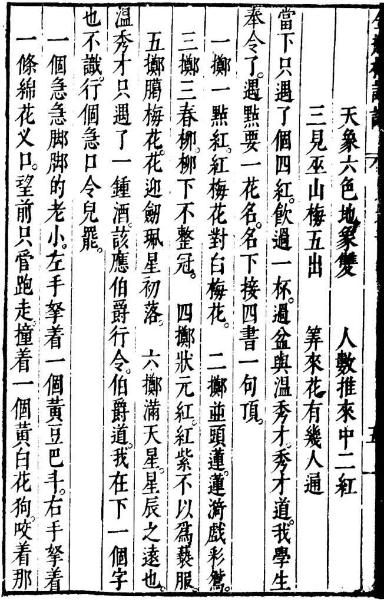 天象六色地象雙　人數推來中二紅
三見巫山梅五出　筭來花有幾人通
當下只遇了個四紅。飲過一杯。過盆與温秀才。秀才道。我學生
奉令了。遇點要一花名。名下接四書一句頂。
一擲一點紅。紅梅花對白梅花。　二擲並頭蓮。蓮漪戲彩鴛。
三擲三春柳。柳下不整冠。　四擲狀元紅。紅紫不以爲褻服。
五擲臈梅花。花迎劒珮星初落。　六擲滿天星。星辰之遠也。
温秀才只遇了一鍾酒。該應伯爵行令。伯爵道。我在下一個字
也不識。行個急口令兒罷。
一個急急脚脚的老小。左手拏着一個黃豆巴斗。右手拏着
一條綿花叉口。望前只管跑走。撞着一個黃白花狗。咬着那